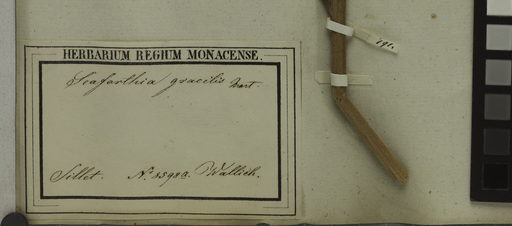 HERBARIUM REGIUM MONACENSE.
Seaforthia gracilis Mart.
Sillet. No. 8598B. Wallich.